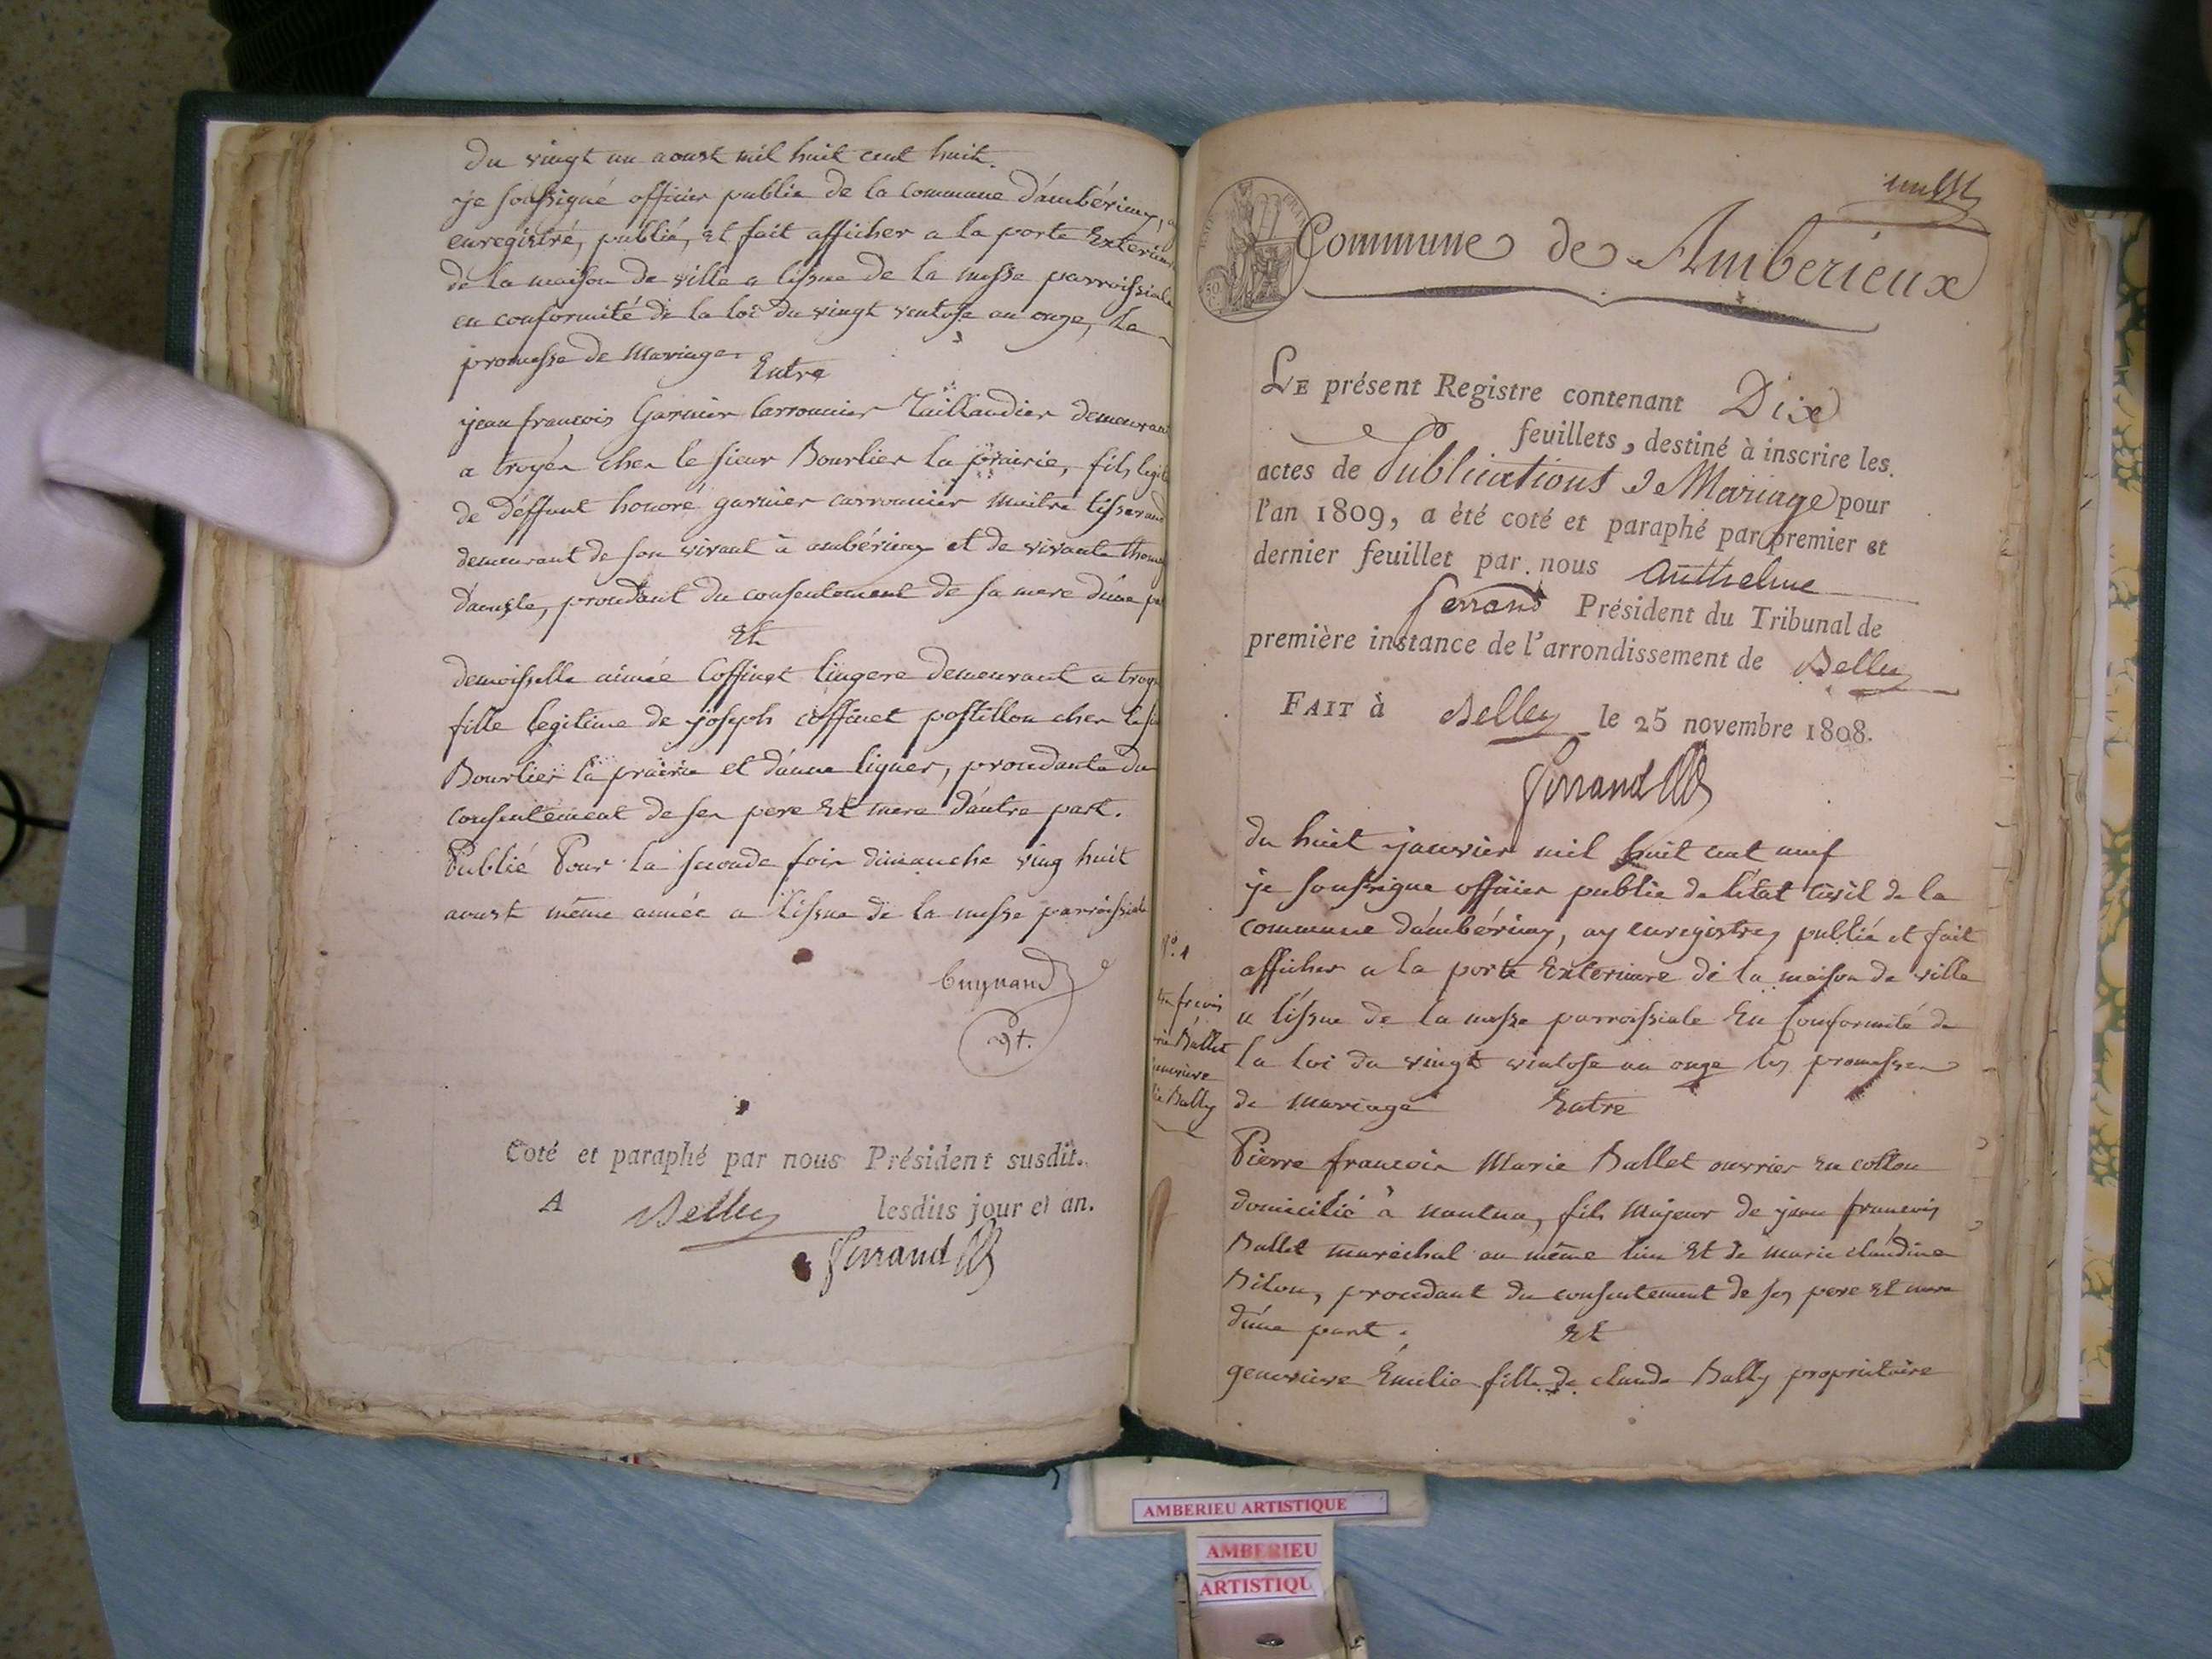 Du vingt un aoust mil huit cent huit.
je soussigné officier public de la commune d'ambérieux,
enregistré, publié, et fait afficher a la porte Exterieure
de la maison de ville a lissue de la messe parroissiale
en conformité de la loi du vingt ventose an onze, la
promesse de Mariage.
Entre
jean françois Garnier Carronnier Taillandier demeurant
a troyes chez le sieur Bourlier la prairie, fils
de déffunt honoré garnier carronnier maitre tisserand
demeurant de son vivant à ambérieux et de vivante
procédant du consentement de sa mere d'une
Et
demoiselle aimée Coffinet lingere demeurant a
fille legitime de joseph coffinet postillon chez
Bourlier la prairie et d'anne liguer, procédante du
consentement de ses pere Et mere d'autre part.
Publié Pour la seconde fois dimanche ving huit
aoust même année a lissue de la messe parroissiale
Cuynand
Coté et paraphé par nous Président susdit.
A Belley lesdits jour et an.
Ferrand
Commune de Amberieux
LE présent Registre contenant Dix
feuillets, destiné à inscrire les
actes de Publications de Mariage pour
l'an 1809, a été coté et paraphé par premier et
dernier feuillet par nous Anthelme
Ferrand Président du Tribunal de
première instance de l'arrondissement de Belley
FAIT à Belley le 25 novembre 1808.
Ferrand
du huit janvier mil huit cent neuf
je soussigne officier public de l'état civil de la
commune d'ambérieux, ay enregistrez publié et fait
afficher a la porte Exterieure de la maison de ville
a l'issue de la messe parroissiale En Conformité de
la loi du vingt ventose an onze les promesses
de mariage Entre
N°. 1
Ballet
Bally
Pierre francois Marie Ballet ouvrier en cotton
domicilié à nantua, fils Majeur de jean françois
Ballet maréchal au même lieu Et de marie claudine
Bilon, procedant du consentement de ses pere Et mere
d'une part. Et
genevieve Émilie fille de claude Bally propriétaire
AMBERIEU ARTISTIQUE
AMBERIEU
ARTISTIQU